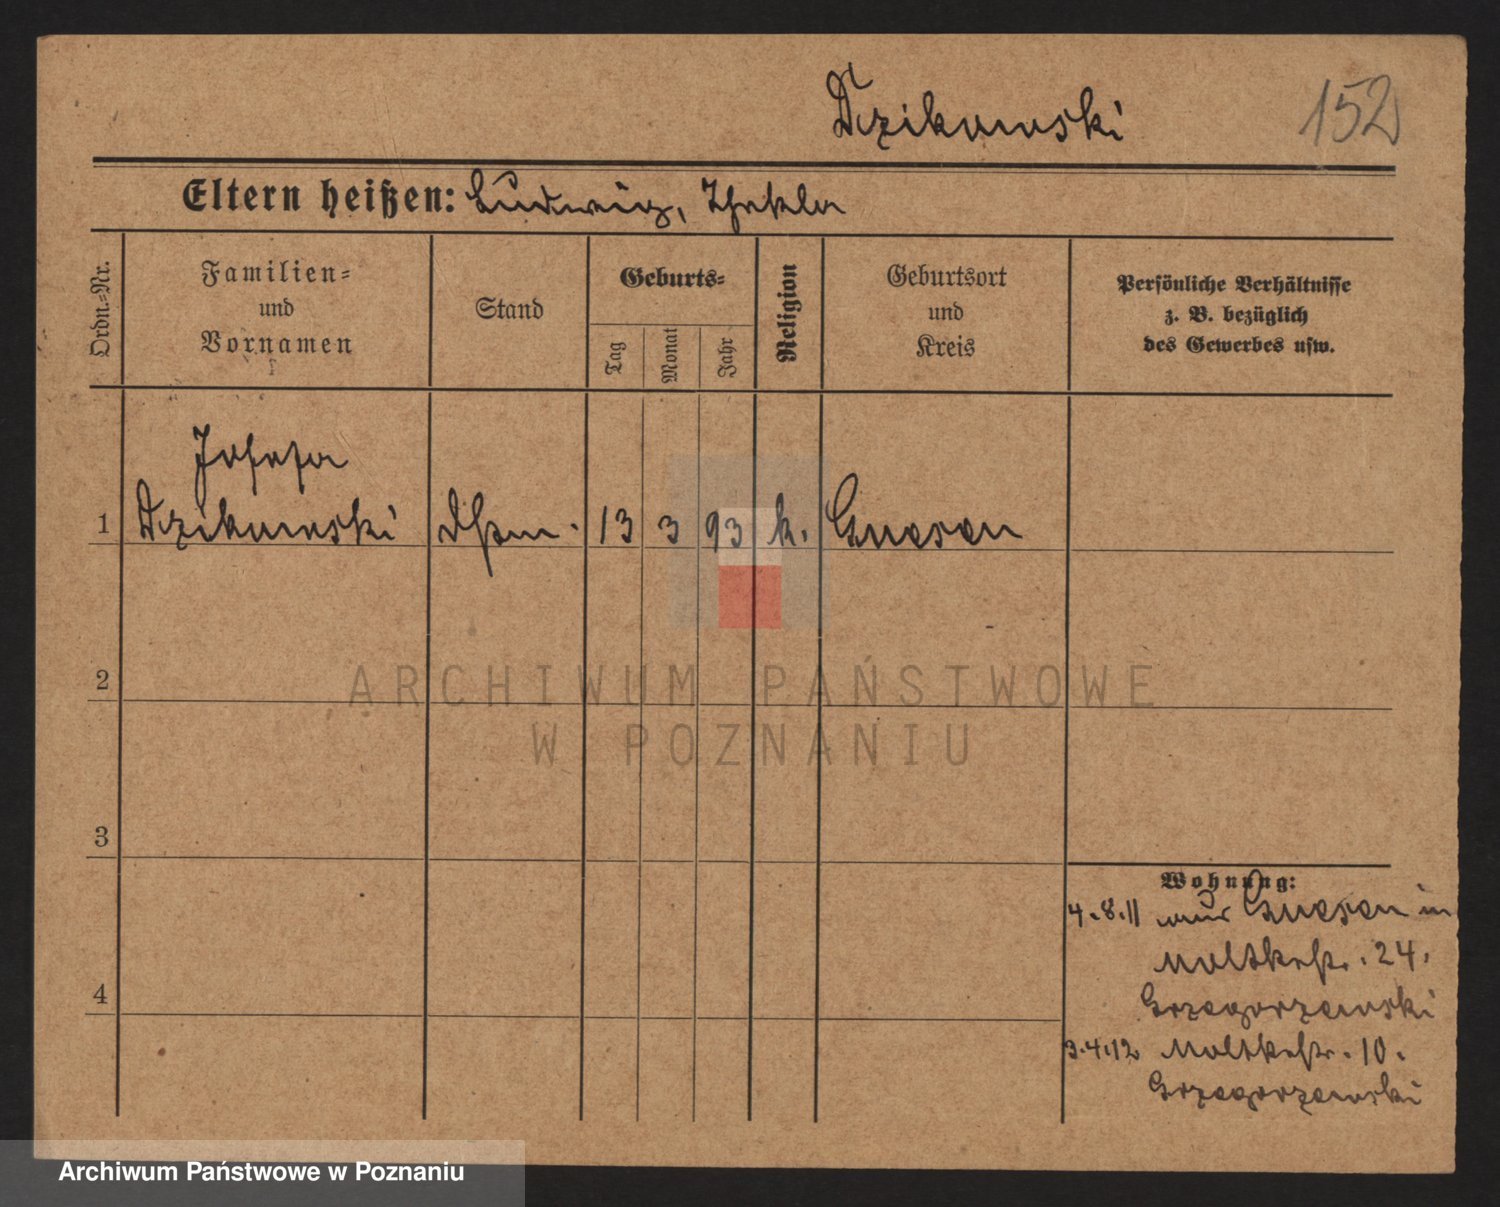 Dzikowski 152
Eltern heißen: Ludwig, Thekla
Ordn.-Nr.
Familien-
und
Vornamen
Stand
Geburts-
Tag
Monat
Jahr
Religion
Geburtsort
und
Kreis
Persönliche Verhältnisse
z. B. bezüglich
des Gewerbes usw.
Josefa
1 Dzikowski 13 3 93 k. Gnesen
2
3
4
Wohnung:
4.8.11 Gnesen in
Moltkestr. 24.
Grzegorzewski
3.4.12 Moltkestr. 10.
Grzegorzewski
ARCHIWUM PAŃSTWOWE
W POZNANIU
Archiwum Państwowe w Poznaniu